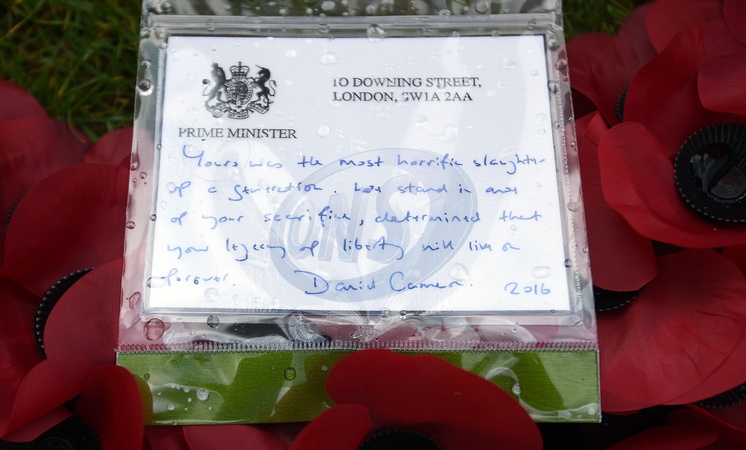 10 DOWNING STREET,
LONDON, SW1A 2AA
PRIME MINISTER
Yours was the most horrific slaughter
of a generation. We stand in awe
of your sacrifice, determined that
your legacy of liberty will live on
forever. David Cameron. 2016
ONS